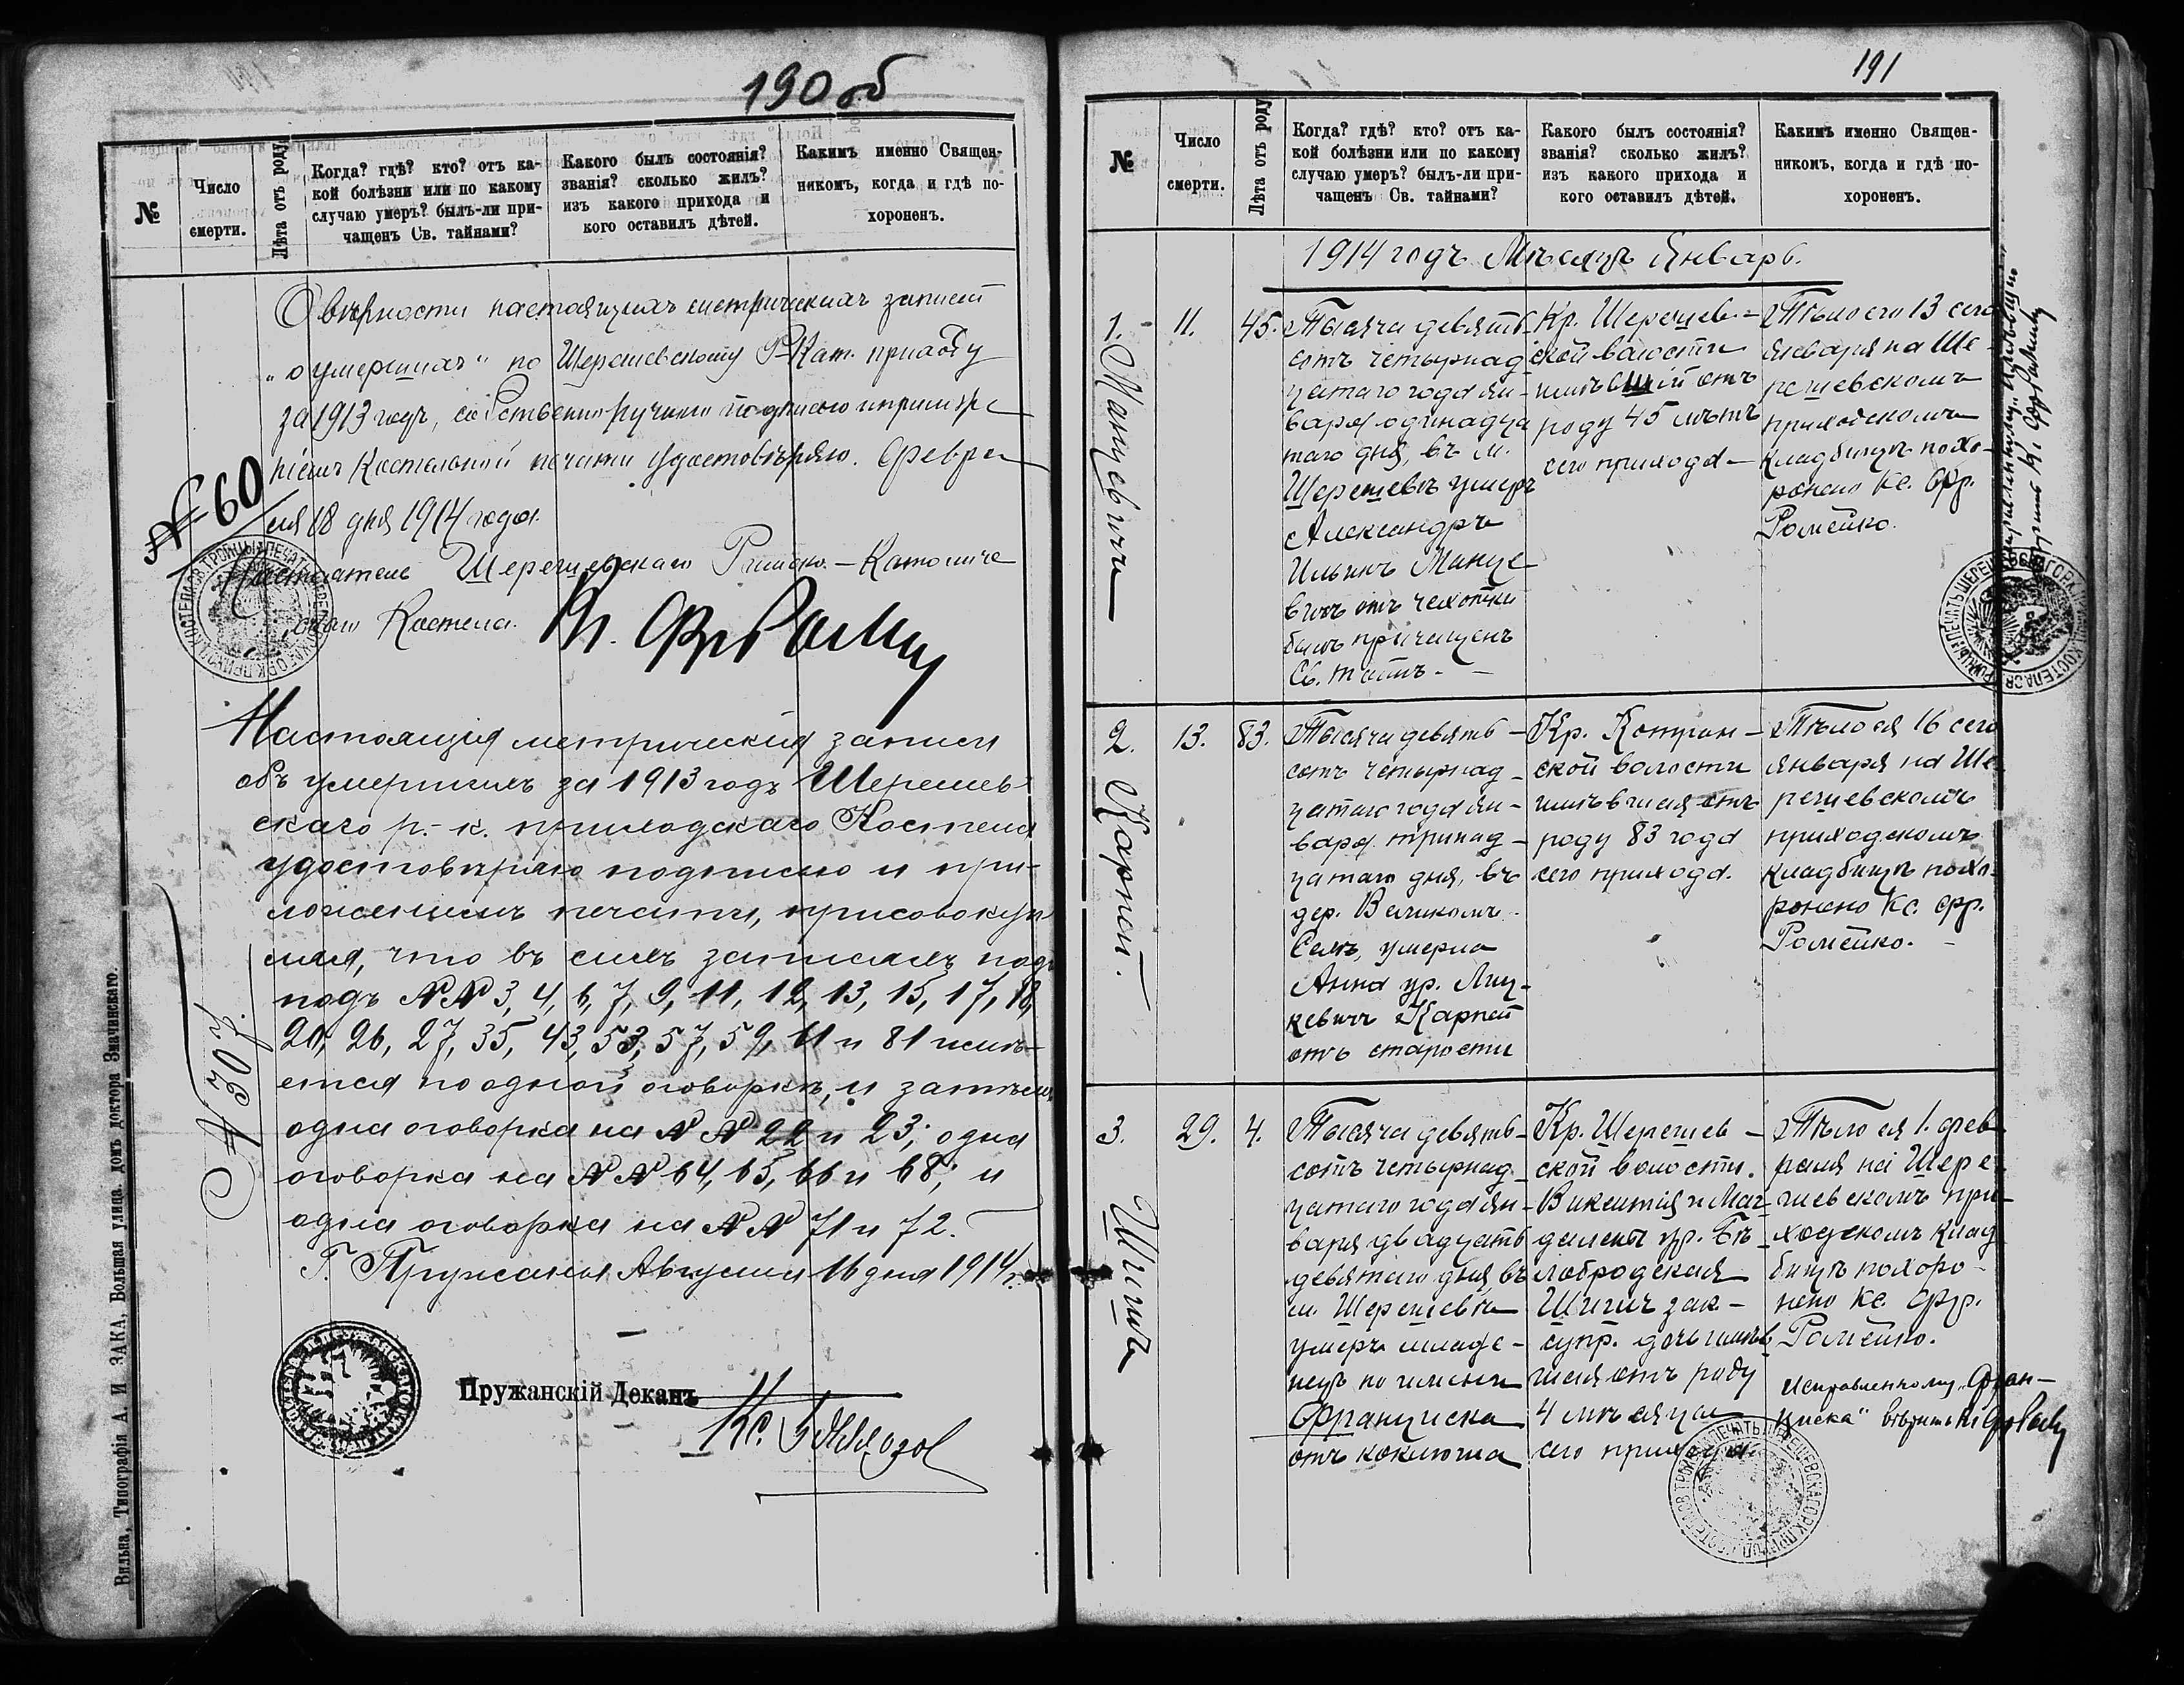 190 об
№
Число смерти.
Лѣта отъ роду
Когда? гдѣ? кто? отъ ка-
кой болѣзни или по какому
случаю умеръ? былъ-ли при-
чащенъ Св. тайнами?
Какого былъ состоянія?
званія? сколько жилъ?
изъ какого прихода и
кого оставилъ дѣтей.
Какимъ именно Священ-
никомъ, когда и гдѣ по-
хороненъ.
О вѣрности настоящихъ метрическихъ записей
„о умершихъ" по Шерешевскому Р-Кат. приходу
за 1913 годъ, собственноручною подписью и прилож
ніемъ Костельной печати удостовѣряю. Февра
ля 18 дня 1914 года.
№ 60
Настоятель Шерешевскаго Римско-Католиче
скаго Костела.
Настоящія метрическія записи
объ умершихъ за 1913 годъ Шерешев-
скаго р.-к. приходскаго Костела
удостовѣряю подписью и при-
ложеніемъ печати, присовокуп
ляя, что въ сихъ записяхъ подъ
подъ №№ 3, 4, 6, 7, 9, 11, 12, 13, 15, 17, 18,
20, 26, 27, 35, 43, 53, 57, 59, 61 и 81 имѣ-
ется по одной оговоркѣ, и затѣмъ
одна оговорка на №№ 22 и 23; одна
оговорка на №№ 64, 65, 66 и 68; и
одна оговорка на №№ 71 и 72.
Г. Пружаны Августа 16 дня 1914 г.
Пружанскій Деканъ
Кс.
Вильна, Типографія А. И ЗАКА, Большая улица. домъ доктора Значинскаго.
191
№
Число
смерти.
Лѣта отъ роду
Когда? гдѣ? кто? отъ ка-
кой болѣзни или по какому
случаю умеръ? былъ-ли при-
чащенъ Св. тайнами?
Какого былъ состоянія?
званія? сколько жилъ?
изъ какого прихода и
кого оставилъ дѣтей.
Какимъ именно Священ-
никомъ, когда и гдѣ по-
хороненъ.
1914 годъ Мѣсяцъ Январь.
1.
Манцевичъ
11.
45.
Тысяча девять-
сотъ четырнад
цатаго года ян-
варя одинадца
таго дня, въ м.
Шерешевѣ умеръ
Александръ
Ильинъ Манце
вичъ отъ чахотки
былъ причащенъ
Св. тайнъ.
Кр. Шерешев-
ской волости
имѣвшій отъ
роду 45 лѣтъ
сего прихода
Тѣло его 13 сего
января на Ше
решевскомъ
приходскомъ
кладбищѣ похо-
ронено Кс. Фр.
Ромейко.
2.
Карпей.
13.
83.
Тысяча девять-
сотъ четырнад-
цатаго года ян-
варя тринад-
цатаго дня, въ
дер. Великомъ
Селѣ, умерла
Анна ур. Лиц-
кевичъ Карпей
отъ старости
Кр. Котран-
ской волости
имѣвшая отъ
роду 83 года
сего прихода.
Тѣло ея 16 сего
января на Ше
решевскомъ
приходскомъ
кладбищѣ похо-
ронено Кс. Фр.
Ромейко.
3.
Шишъ
29.
4.
Тысяча девять-
сотъ четырнад-
цатаго года ян-
варя двадцать
девятаго дня, въ
м. Шерешевѣ
умеръ младе-
нецъ по имени
Франциска
отъ коклюша
Кр. Шерешев-
ской волости.
Викентія и Маг-
далены ур. Бѣ-
лобродская
Шишъ зак.-
супр. дочь имѣв
шая отъ роду
4 мѣсяца
сего прихода.
Тѣло ея 1. фев
раля на Шере
шевскомъ при-
ходскомъ клад
бищѣ похоро-
нено Кс. Фр.
Ромейко.
Исправленному „Фран-
циска" вѣрить